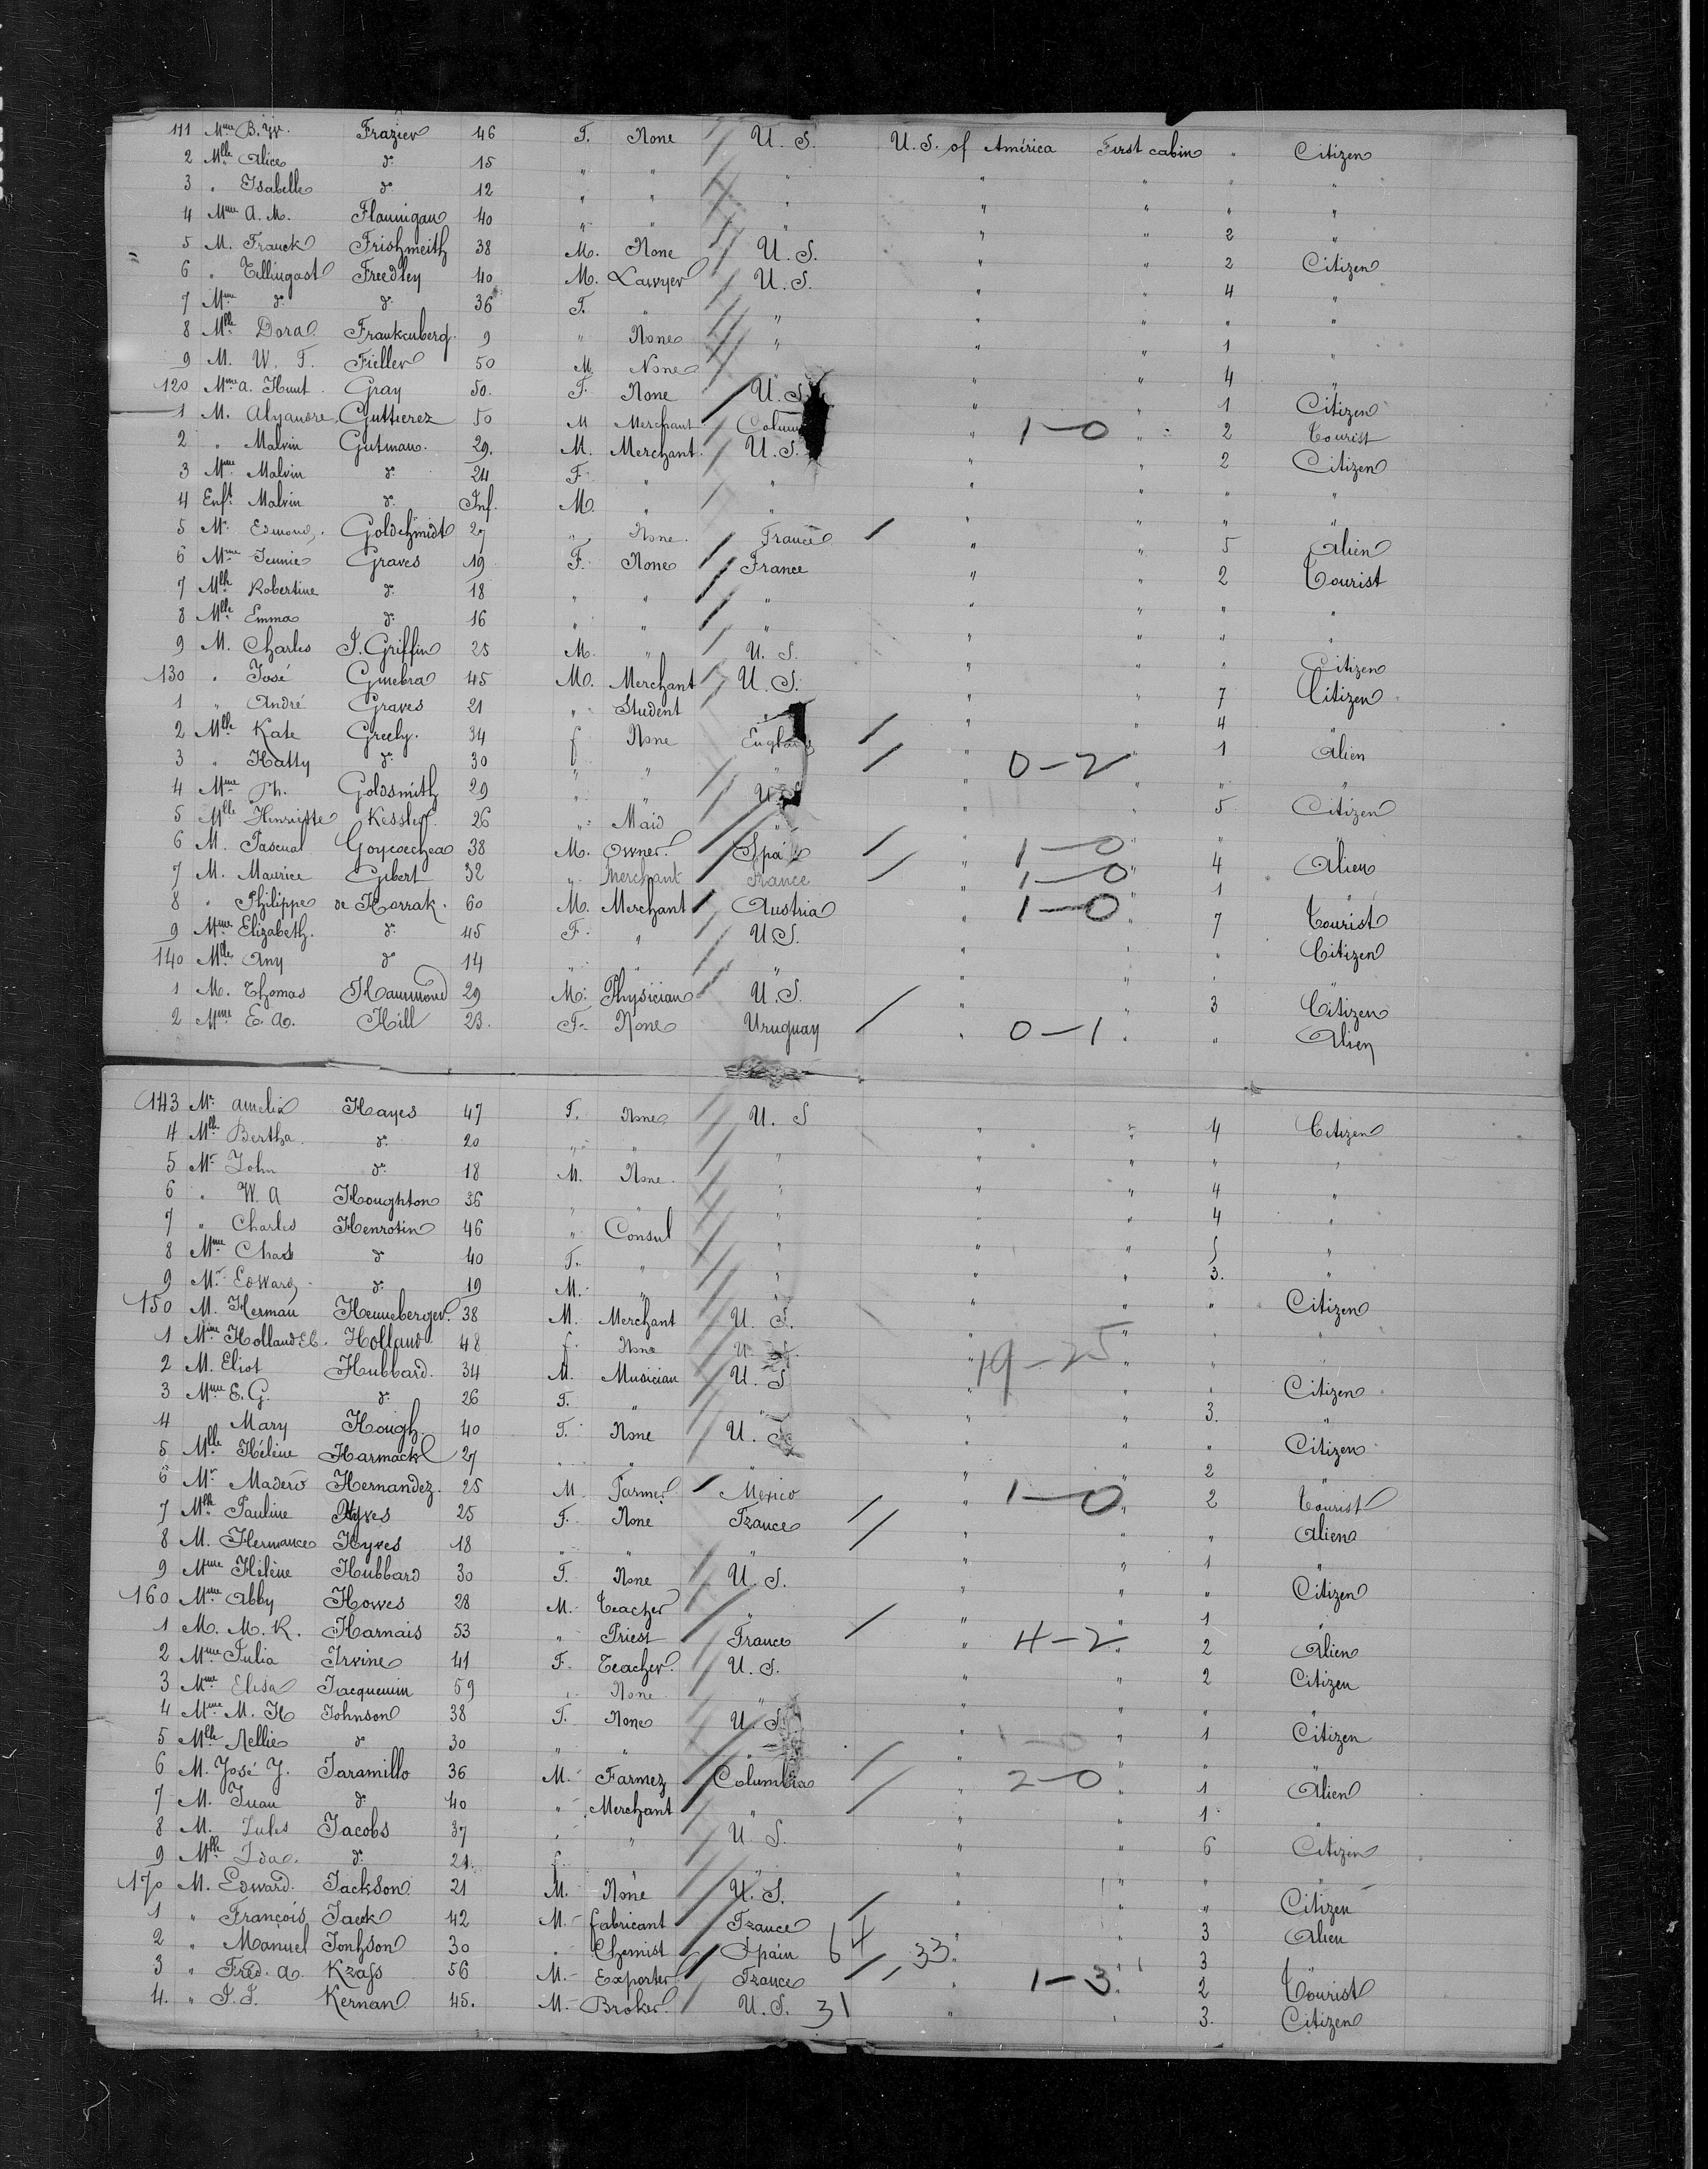 111 Mme B. W. Frazier 46 F. None U. S. U. S. of América First cabin " Citizen
2 Mlle Alice do 15 " " " " " " "
3 " Isabelle do 12 " " " " " " "
4 Mme A. M. Flannigan 40 " " " " " 2 "
5 M. Franck Frishmeith 38 M. None U. S. " " 2 Citizen
6 " Tillingast Freedley 40 M. Lawyer U. S. " " 4 "
7 Mme do do 36 F. " " " " " "
8 Mlle Dora Frankenberg 9 " None " " " 1 "
9 M. W. T. Fieller 50 M. None " " 4 "
120 Mme A. Hunt Gray 50. F. None U. S. " " 1 Citizen
1 M. Alyandre Guttierez 50 M Merchant " 1-0 " 2 Tourist
2 " Malvin Gutman. 29. M. Merchant U. S. " " 2 Citizen
3 Mme Malvin do 24 F. " " " " " "
4 Enft Malvin do Inf. M. " " " " " "
5 Mr Edmond Goldchmidt 27 " None France " " 5 Alien
6 Mme Jennie Graves 19 F. None France " " 2 Tourist
7 Mlle Robertine do 18 " " " " " " "
8 Mlle Emma do 16 " " " " " " "
9 M. Charles J. Griffin 25 M. " U. S. " " " Citizen
130 " José Ginebra 45 M. Merchant U. S. " " 7 Citizen
1 " André Graves 21 " Student " " " 4 "
2 Mlle Kate Greely. 34 f None England " " 1 Alien
3 " Hatty do 30 " " " " 0-2 " " "
4 Mme Ph. Goldsmith 29 " " U. S. " " 5 Citizen
5 Mlle Henriette Kessler 26 " Maid " " " " "
6 M. Pascual Goycoechea 38 M. Owner. Spain " 1-0 " 4 Alien
7 M. Maurice Gibert 32 " Merchant France " 1-0 " 1 "
8 " Philippe de Harrak. 60 M. Merchant Austria " 1-0 " 7 Tourist
9 Mme Elizabeth. do 45 F. " U. S. " " " Citizen
140 Mlle Any do 14 " " " " " " "
1 M. Thomas Hammond 29 M. Physician U. S. " " 3 Citizen
2 Mme E. A. Hill 23. F. None Uruguay " 0-1 " " Alien
143 Mr Amelia Hayes 47 F. None U. S " " 4 Citizen
4 Mlle Bertha do 20 " " " " " " "
5 Mr John do 18 M. None " " " 4 "
6 " W. A Houghton 36 " " " " " 4 "
7 " Charles Henrotin 46 " Consul " " " 5 "
8 Mme Chas do 40 F. " " " " 3. "
9 Mr Edward do 19 M. " " " " " "
150 M. Herman Henneberger 38 M. Merchant U. S. " " " Citizen
1 Mme Holland Holland 48 f. None U. S. " 19-25 " " "
2 M. Eliot Hubbard. 34 M. Musician U. S " " " Citizen
3 Mme E. G. do 26 F. " " " " 3. "
4 Mary Hough 40 F. None U. S. " " " Citizen
5 Mlle Hélène Harmack 27 " " " " " 2 "
6 Mr Madero Hernandez. 25 M. Farmer Mexico " 1-0 " 2 Tourist
7 Mlle Pauline Hyves 25 F. None France " " " Alien
8 M. Hermance Hyves 18 " " " " " 1 "
9 Mme Hélène Hubbard 30 F. None U. S. " " " Citizen
160 Mme Abby Howes 28 M. Teacher " " " 1 "
1 M. M. R. Harnais 53 " Priest France " 4-2 " 2 Alien
2 Mme Julia Irvine 41 F. Teacher. U. S. " " 2 Citizen
3 Mme Elisa Jacquemin 59 " None " " " " "
4 Mme M. H Johnson 38 F. None U. S. " " 1 Citizen
5 Mlle Nellie do 30 " " " " 1-0 " " "
6 M. José J. Jaramillo 36 M. Farmer Columbia " 2-0 " 1 Alien
7 M. Juan do 40 " Merchant " " " 1 "
8 M. Jules Jacobs 37 " " U. S. " " 6 Citizen
9 Mlle Ida do 21. f. " " " " "
170 M. Edward. Jackson 21 M. None U. S. " " " Citizen
1 " François Jack 42 M. fabricant France " " 3 Alien
2 " Manuel Jonhson 30 " Chemist Spain 64 33 " " 3 "
3 " Fréd. A. 56 M. Exporter France " 1-3 " 2 Tourist
4. " J. J. Kernan 45. M. Broker U. S. 31 " " 3. Citizen